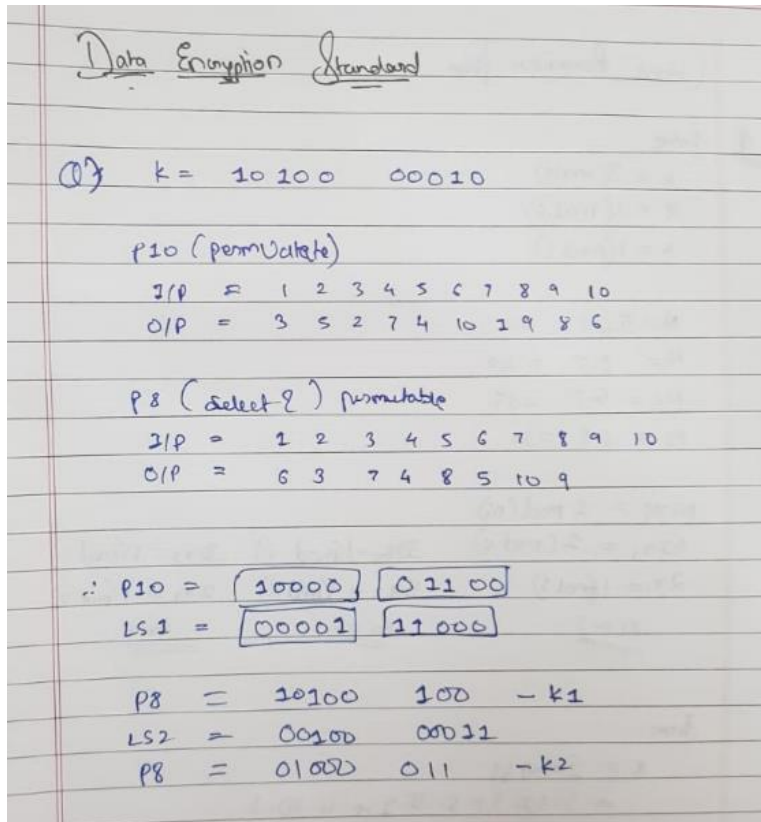 Data Encryption Standard
Q} k = 10 100 00010
P10 (permutate)
I/P = 1 2 3 4 5 6 7 8 9 10
O/P = 3 5 2 7 4 10 1 9 8 6
P8 (select 8) permutable
I/P = 1 2 3 4 5 6 7 8 9 10
O/P = 6 3 7 4 8 5 10 9
∴ P10 = 10000 01100
LS1 = 00001 11000
P8 = 10100 100 - k1
LS2 = 00100 00011
P8 = 01000 011 - k2